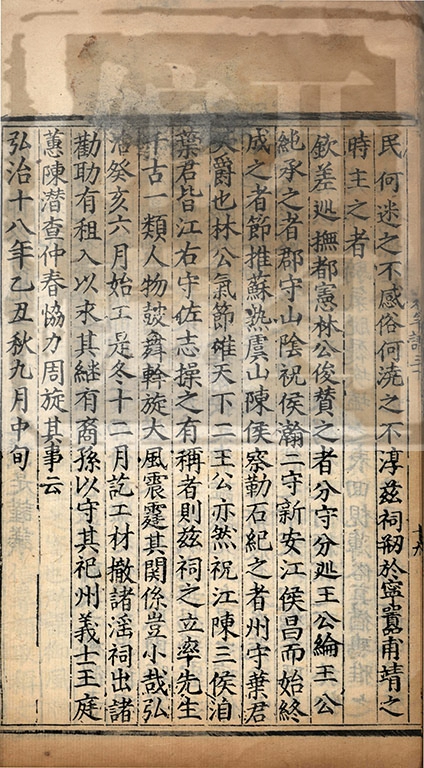 民何迷之不感俗何澆之不淳兹祠剏於寧蠹甫靖之
時主之者
欽差廵撫都憲林公俊賛之者分守分廵王公綸王公
純承之者郡守山陰祝侯瀚二守新安江侯昌而始終
成之者節推蘇熟虞山陳侯察勒石紀之者州守葉君
天爵也林公氣節雄天下二王公亦然祝江陳三侯洎
葉君皆江右守佐志操之有稱者則兹祠之立率先生
千古一類人物鼓舞斡旋大風震霆其関係豈小哉弘
治癸亥六月始工是冬十二月訖工材撤諸淫祠出諸
勸助有租入以求其継有裔孫以守其祀州義士王庭
蕙陳潜查仲春恊力周旋其事云
弘治十八年乙丑秋九月中旬